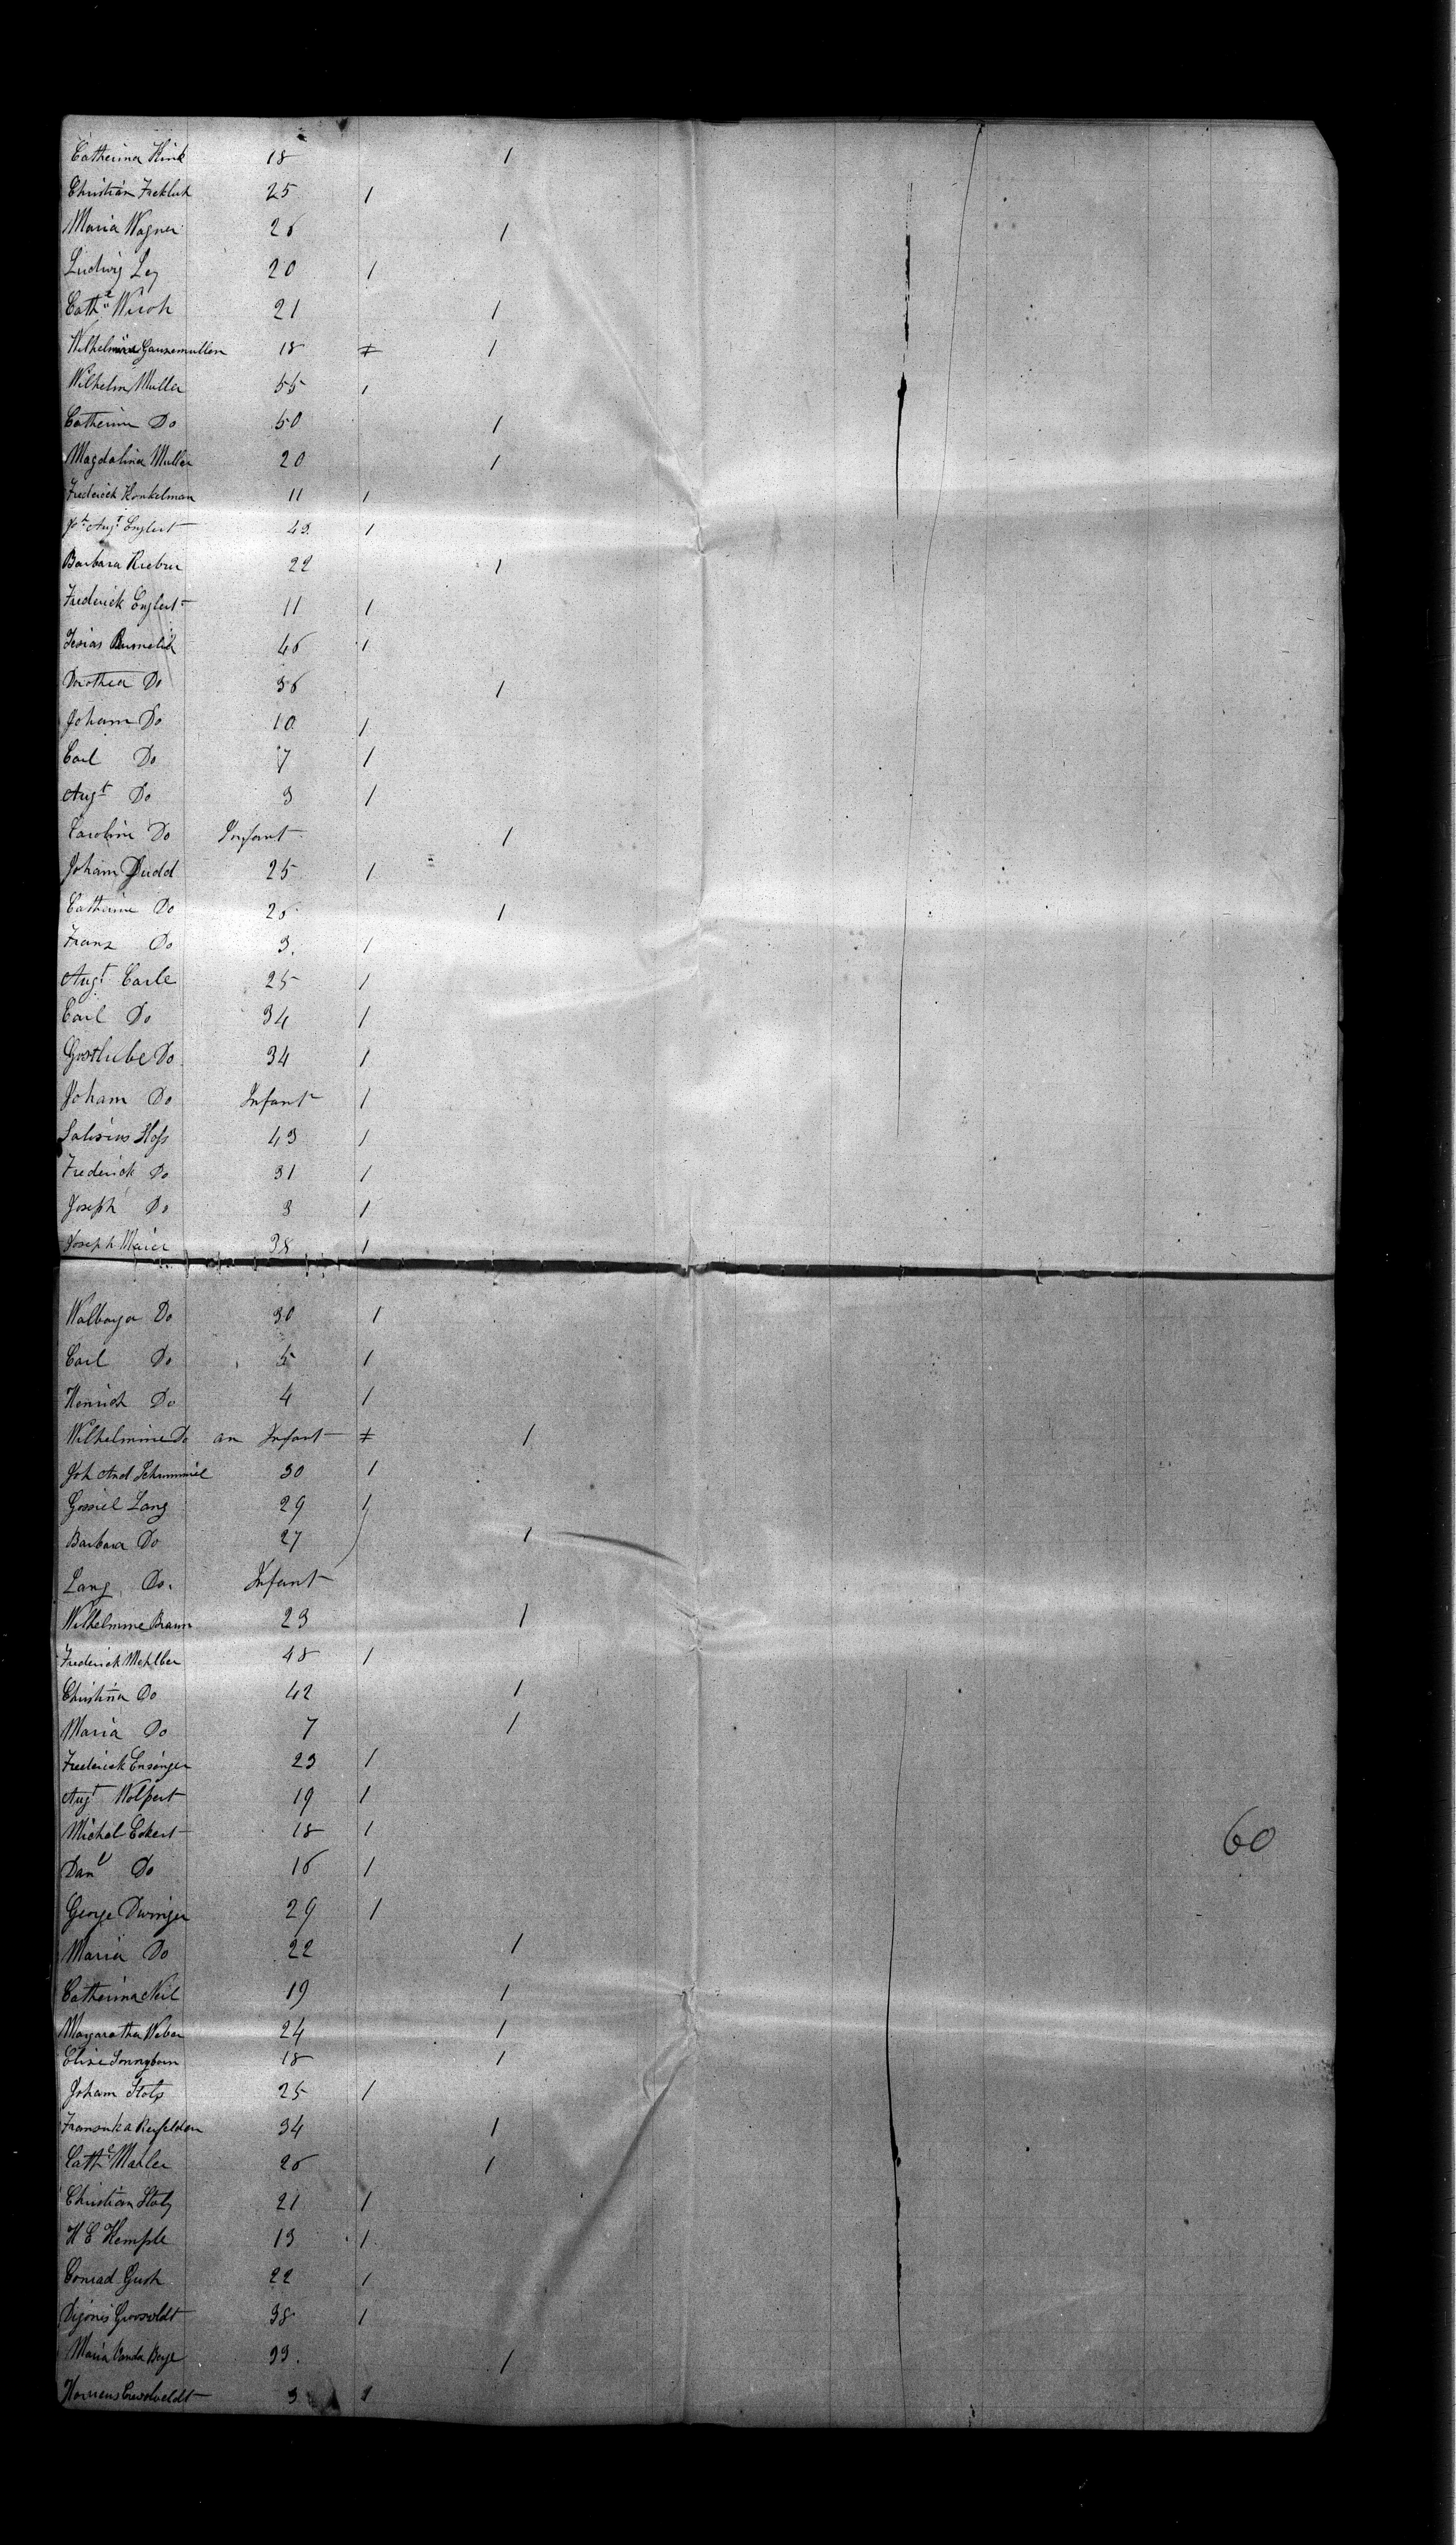 Catherina Kink 18 1
Christian Freklich 25 1
Maria Wagner 26 1
Ludwig Ley 20 1
Cath. Wisoh 21 1
Wilhelmina Gausemullen 18 1
Wilhelm Muller 55 1
Catherine Do 50 1
Magdalina Muller 20 1
Frederick Konkelman 11 1
Jo. Augt Englert 43 1
Barbara Rieber 22 1
Frederick Englert 11 1
46 1
Dorothea Do 36 1
Joham Do 10 1
Carl Do 7 1
Augt Do 3 1
Caroline Do Infant 1
Joham Judd 25 1
Catherine Do 26 1
Franz Do 3. 1
Augt Carle 25 1
Carl Do 34 1
Gostlube Do 34 1
Joham Do Infant 1
Hofs 43 1
Frederick Do 31 1
Joseph Do 3 1
Joseph Maier 38 1
Walburga Do 30 1
Carl Do 5 1
Henrich Do 4 1
Wilhelmine Do an Infant 1
Joh And Schimmiel 30 1
Lang 29 1
Barbara Do 27 1
Lang Do. Infant
Wilhelmine Braun 23 1
Frederick Mehlber 48 1
Christina Do 42 1
Maria Do 7 1
Frederick Ensinger 23 1
Augt Wolpert 19 1
Michel Eckert 18 1
Danl Do 16 1
George Dwinger 29 1
Maria Do 22 1
Catherina Neil 19 1
Margaretha Weber 24 1
Elise Sonnyborn 18 1
Joham Stolz 25 1
Fransiska Reifelden 34 1
Cathe Mahler 26 1
Christian Stolz 21 1
H C Kemple 13 1
Conrad Gush 22 1
38 1
Maria Vanda Berge 33. 1
3 1
60